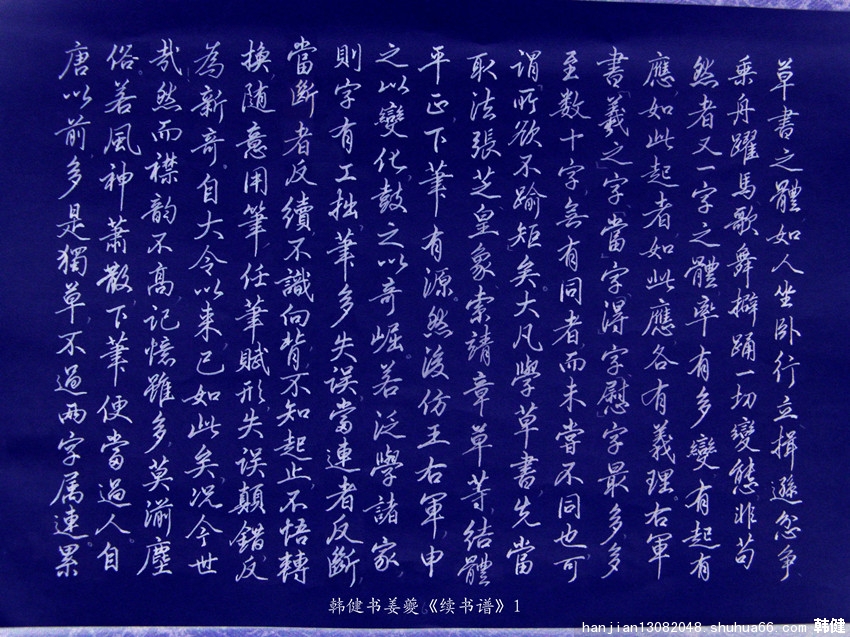 草書之體,如人坐卧行立揖遜忿爭,
乘舟躍馬歌舞擗踊,一切變態,非苟
然者。又一字之體率有多變,有起有
應,如此起者如此應,各有義理。右軍
書「羲之」字「當」字「得」字「慰」字最多,多
至数十字,無有同者,而未嘗不同也,可
謂「所欲不踰矩」矣。大凡學草書,先當
取法張芝皇象索靖章草等,結體
平正,下筆有源。然後仿王右軍,申
之以變化,鼓之以奇崛。若泛學諸家,
則字有工拙,筆多失误,當連者反断,
當断者反續,不識向背,不知起止,不悟轉
換,随意用筆,任筆賦形,失误顛錯,反
為新奇。自大令以来,已如此矣,况今世
哉。然而襟韵不高,記憶雖多,莫湔塵
俗。若風神蕭散,下筆便當過人。自
唐以前多是獨草,不過两字属連。累
韩健书姜夔《续书谱》1
hanjian13082048.shuhua66.com 韩健